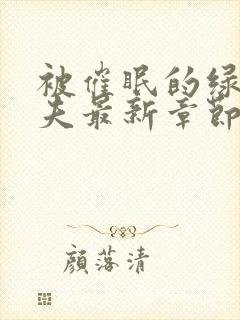 被催眠的绿
夫最新章節
顏落清